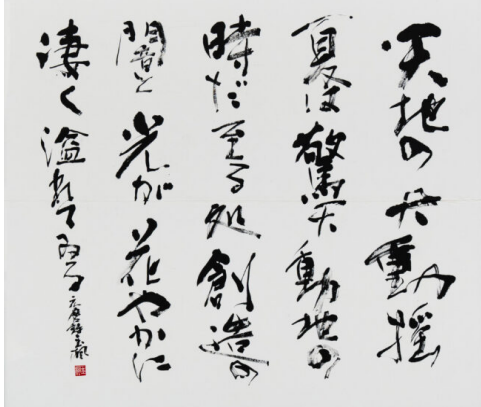 天地の大動揺
夏は驚天動地の
時だ至る処創造の
闇と光が花やかに
凄く溢れてゐる